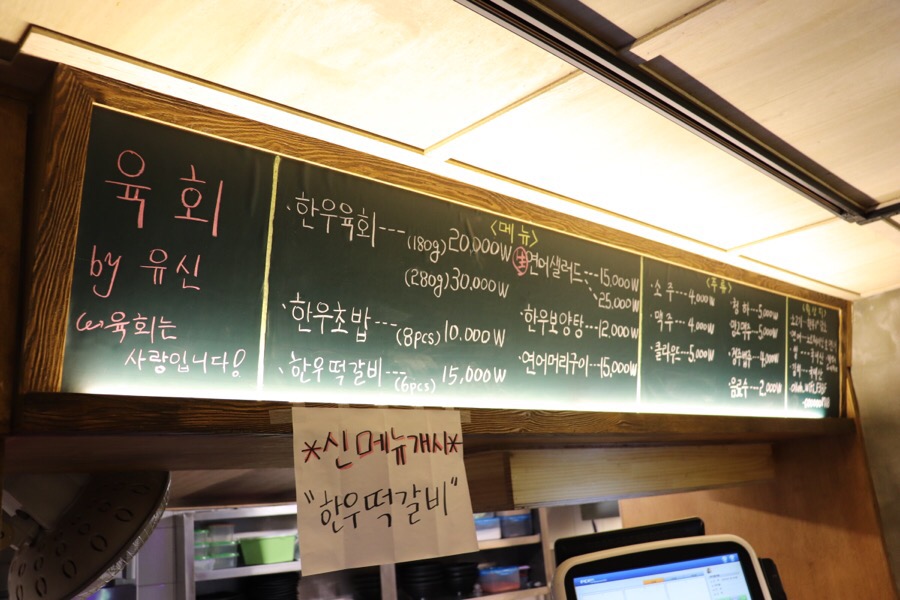 육회
by 유신
육회는
사랑입니다!
<메뉴>
한우육회---(180g) 20,000W
(280g) 30,000W
한우초밥---(8pcs) 10,000W
한우떡갈비---(6pcs) 15,000W
生연어샐러드---15,000W
25,000W
한우보양탕---12,000W
연어머리구이---15,000W
소주---4,000W
맥주---4,000W
클라우드---5,000W
청하---5,000W
5,000W
음료수---2,000W
*신메뉴개시*
"한우떡갈비"